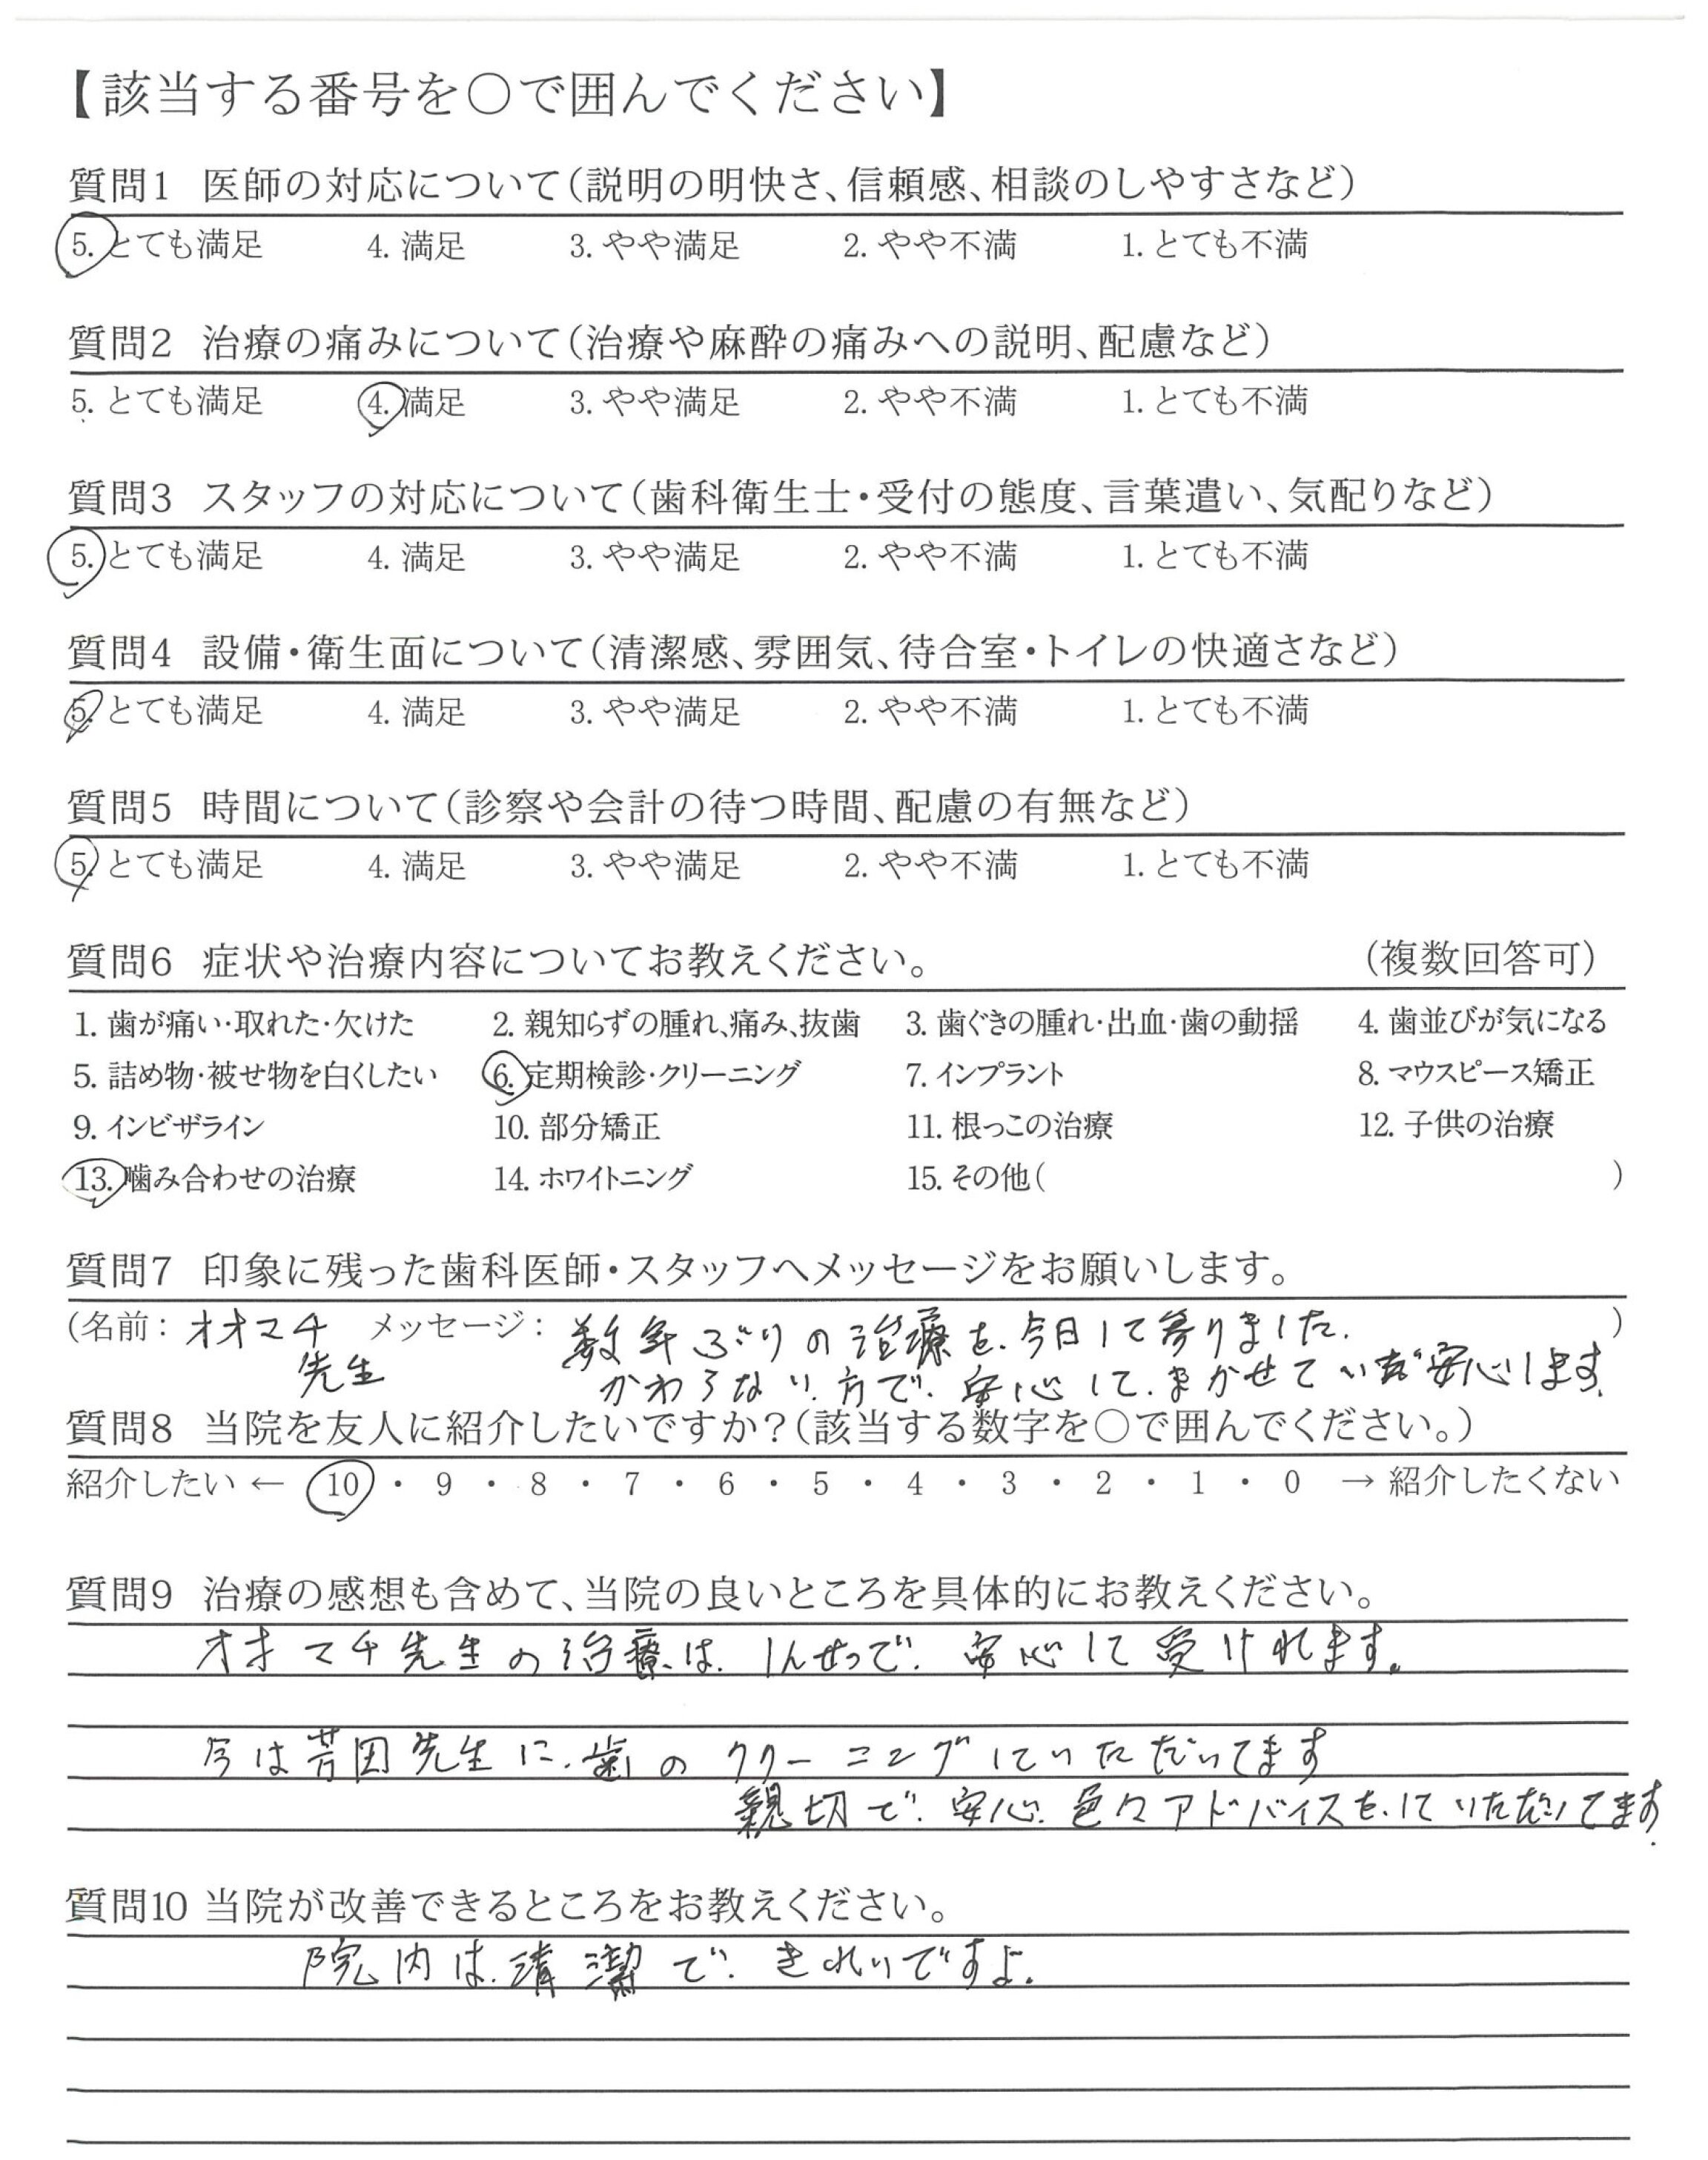 【該当する番号を○で囲んでください】
質問1 医師の対応について(説明の明快さ、信頼感、相談のしやすさなど)
5. とても満足 4. 満足 3. やや満足 2. やや不満 1. とても不満
質問2 治療の痛みについて(治療や麻酔の痛みへの説明、配慮など)
5. とても満足 4. 満足 3. やや満足 2. やや不満 1. とても不満
質問3 スタッフの対応について(歯科衛生士・受付の態度、言葉遣い、気配りなど)
5. とても満足 4. 満足 3. やや満足 2. やや不満 1. とても不満
質問4 設備・衛生面について(清潔感、雰囲気、待合室・トイレの快適さなど)
5. とても満足 4. 満足 3. やや満足 2. やや不満 1. とても不満
質問5 時間について(診察や会計の待つ時間、配慮の有無など)
5. とても満足 4. 満足 3. やや満足 2. やや不満 1. とても不満
質問6 症状や治療内容についてお教えください。 (複数回答可)
1. 歯が痛い・取れた・欠けた 2. 親知らずの腫れ、痛み、抜歯 3. 歯ぐきの腫れ・出血・歯の動揺 4. 歯並びが気になる
5. 詰め物・被せ物を白くしたい 6. 定期検診・クリーニング 7. インプラント 8. マウスピース矯正
9. インビザライン 10. 部分矯正 11. 根っこの治療 12. 子供の治療
13. 噛み合わせの治療 14. ホワイトニング 15. その他( )
質問7 印象に残った歯科医師・スタッフへメッセージをお願いします。
(名前: オオマチ メッセージ: 数年ぶりの治療を.今日して寄りました. )
先生 かわらない.方で.安心して.まかせて 安心します.
質問8 当院を友人に紹介したいですか?(該当する数字を○で囲んでください。)
紹介したい ← 10 ・ 9 ・ 8 ・ 7 ・ 6 ・ 5 ・ 4 ・ 3 ・ 2 ・ 1 ・ 0 → 紹介したくない
質問9 治療の感想も含めて、当院の良いところを具体的にお教えください。
オオマチ先生の治療は.しんせつで.安心して受けれます。
今は 先生に.歯のクリーニングしていただいてます
親切で.安心.色々アドバイスを.していただいてます.
質問10 当院が改善できるところをお教えください。
院内は.清潔で.きれいですよ.